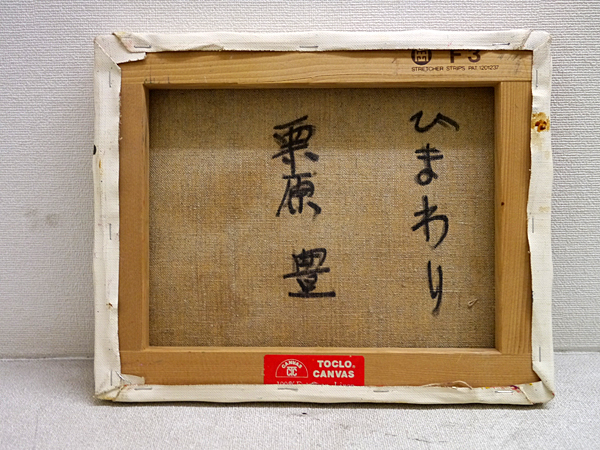 F3
STRETCHER STRIPS PAT. 1201237
ひまわり
栗原 豊
CANVAS
CTC
TOCLO
CANVAS